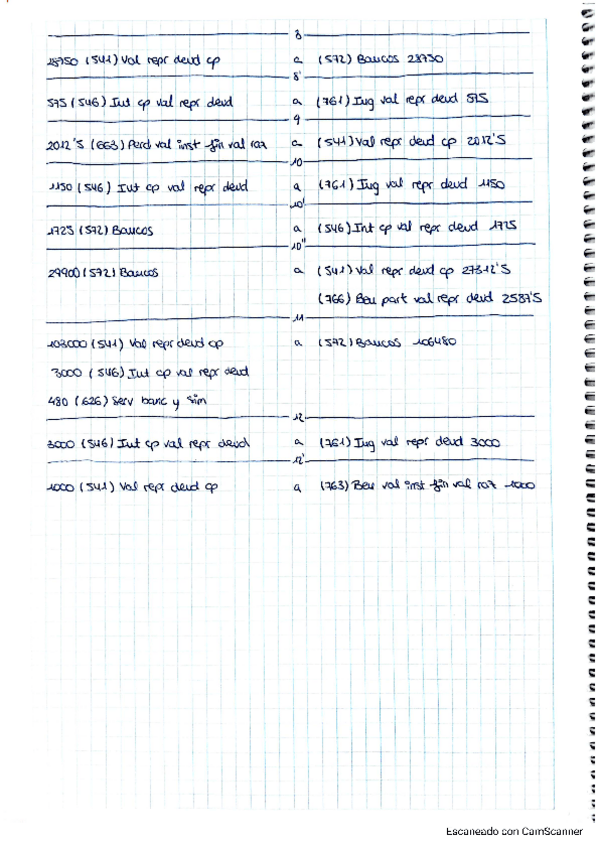 8
28750 (541) Val repr deud cp a (572) Bancos 28750
8'
575 (546) Int cp val repr deud a (761) Ing val repr deud 575
9
2012'5 (663) Perd val inst fin val raz a (541) Val repr deud cp 2012'5
10
1150 (546) Int cp val repr deud a (761) Ing val repr deud 1150
10'
1725 (572) Bancos a (546) Int cp val repr deud 1725
10''
29900 (572) Bancos a (541) Val repr deud cp 27312'5
(766) Ben part val repr deud 2587'5
11
103000 (541) Val repr deud cp a (572) Bancos 106480
3000 (546) Int cp val repr deud
480 (626) Serv banc y sim
12
3000 (546) Int cp val repr deud a (761) Ing val repr deud 3000
12'
1000 (541) Val repr deud cp a (763) Ben val inst fin val raz 1000
Escaneado con CamScanner